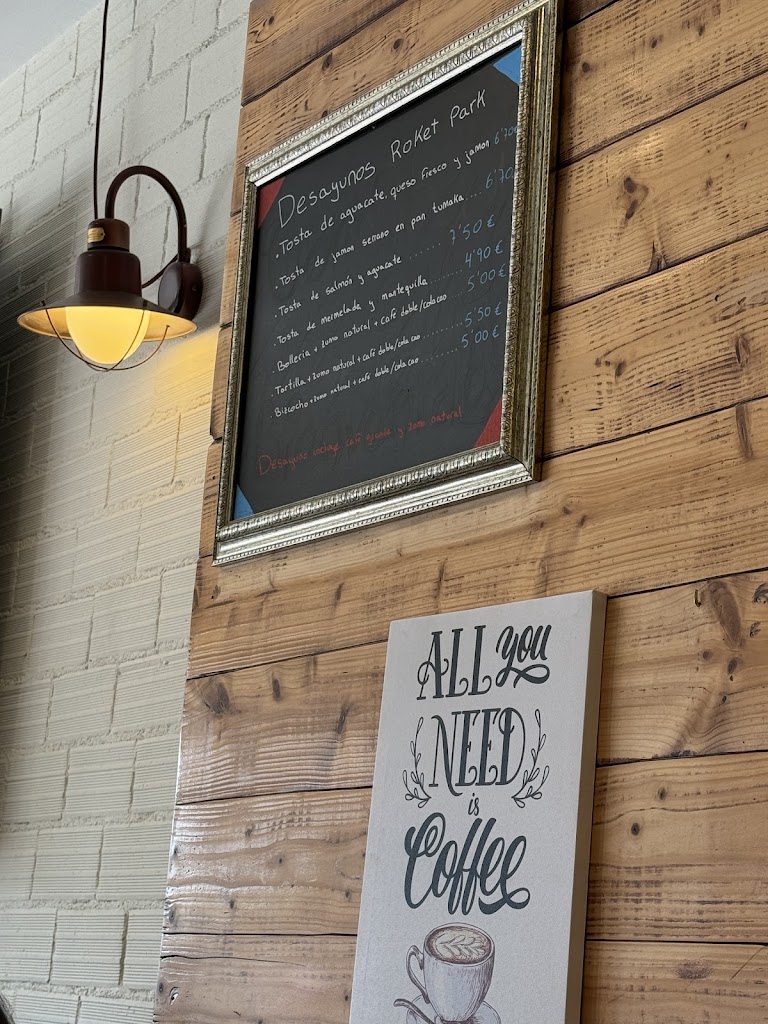 Desayunos Roket Park
· Tosta de aguacate, queso fresco y jamon 6'70
· Tosta de jamon serrano en pan tumaka.... 6'70
· Tosta de salmón y aguacate ....... 7'50 €
· Tosta de mermelada y mantequilla....... 4'90 €
· Bolleria + zumo natural + café doble/cola cao ..... 5'00 €
· Tortilla + zumo natural + café doble/cola cao ......... 5'50 €
· Bizcocho + zumo natural + café doble/cola cao ......... 5'00 €
Desayuno incluye café y zumo natural
ALL you
NEED
is
Coffee